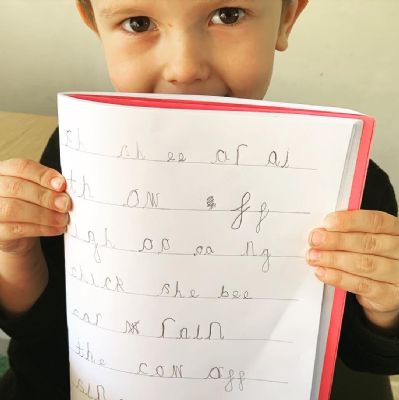 sh ch ee ar ai
th ow ff
igh oo oa ng
chick she bee
car rain
the cow off